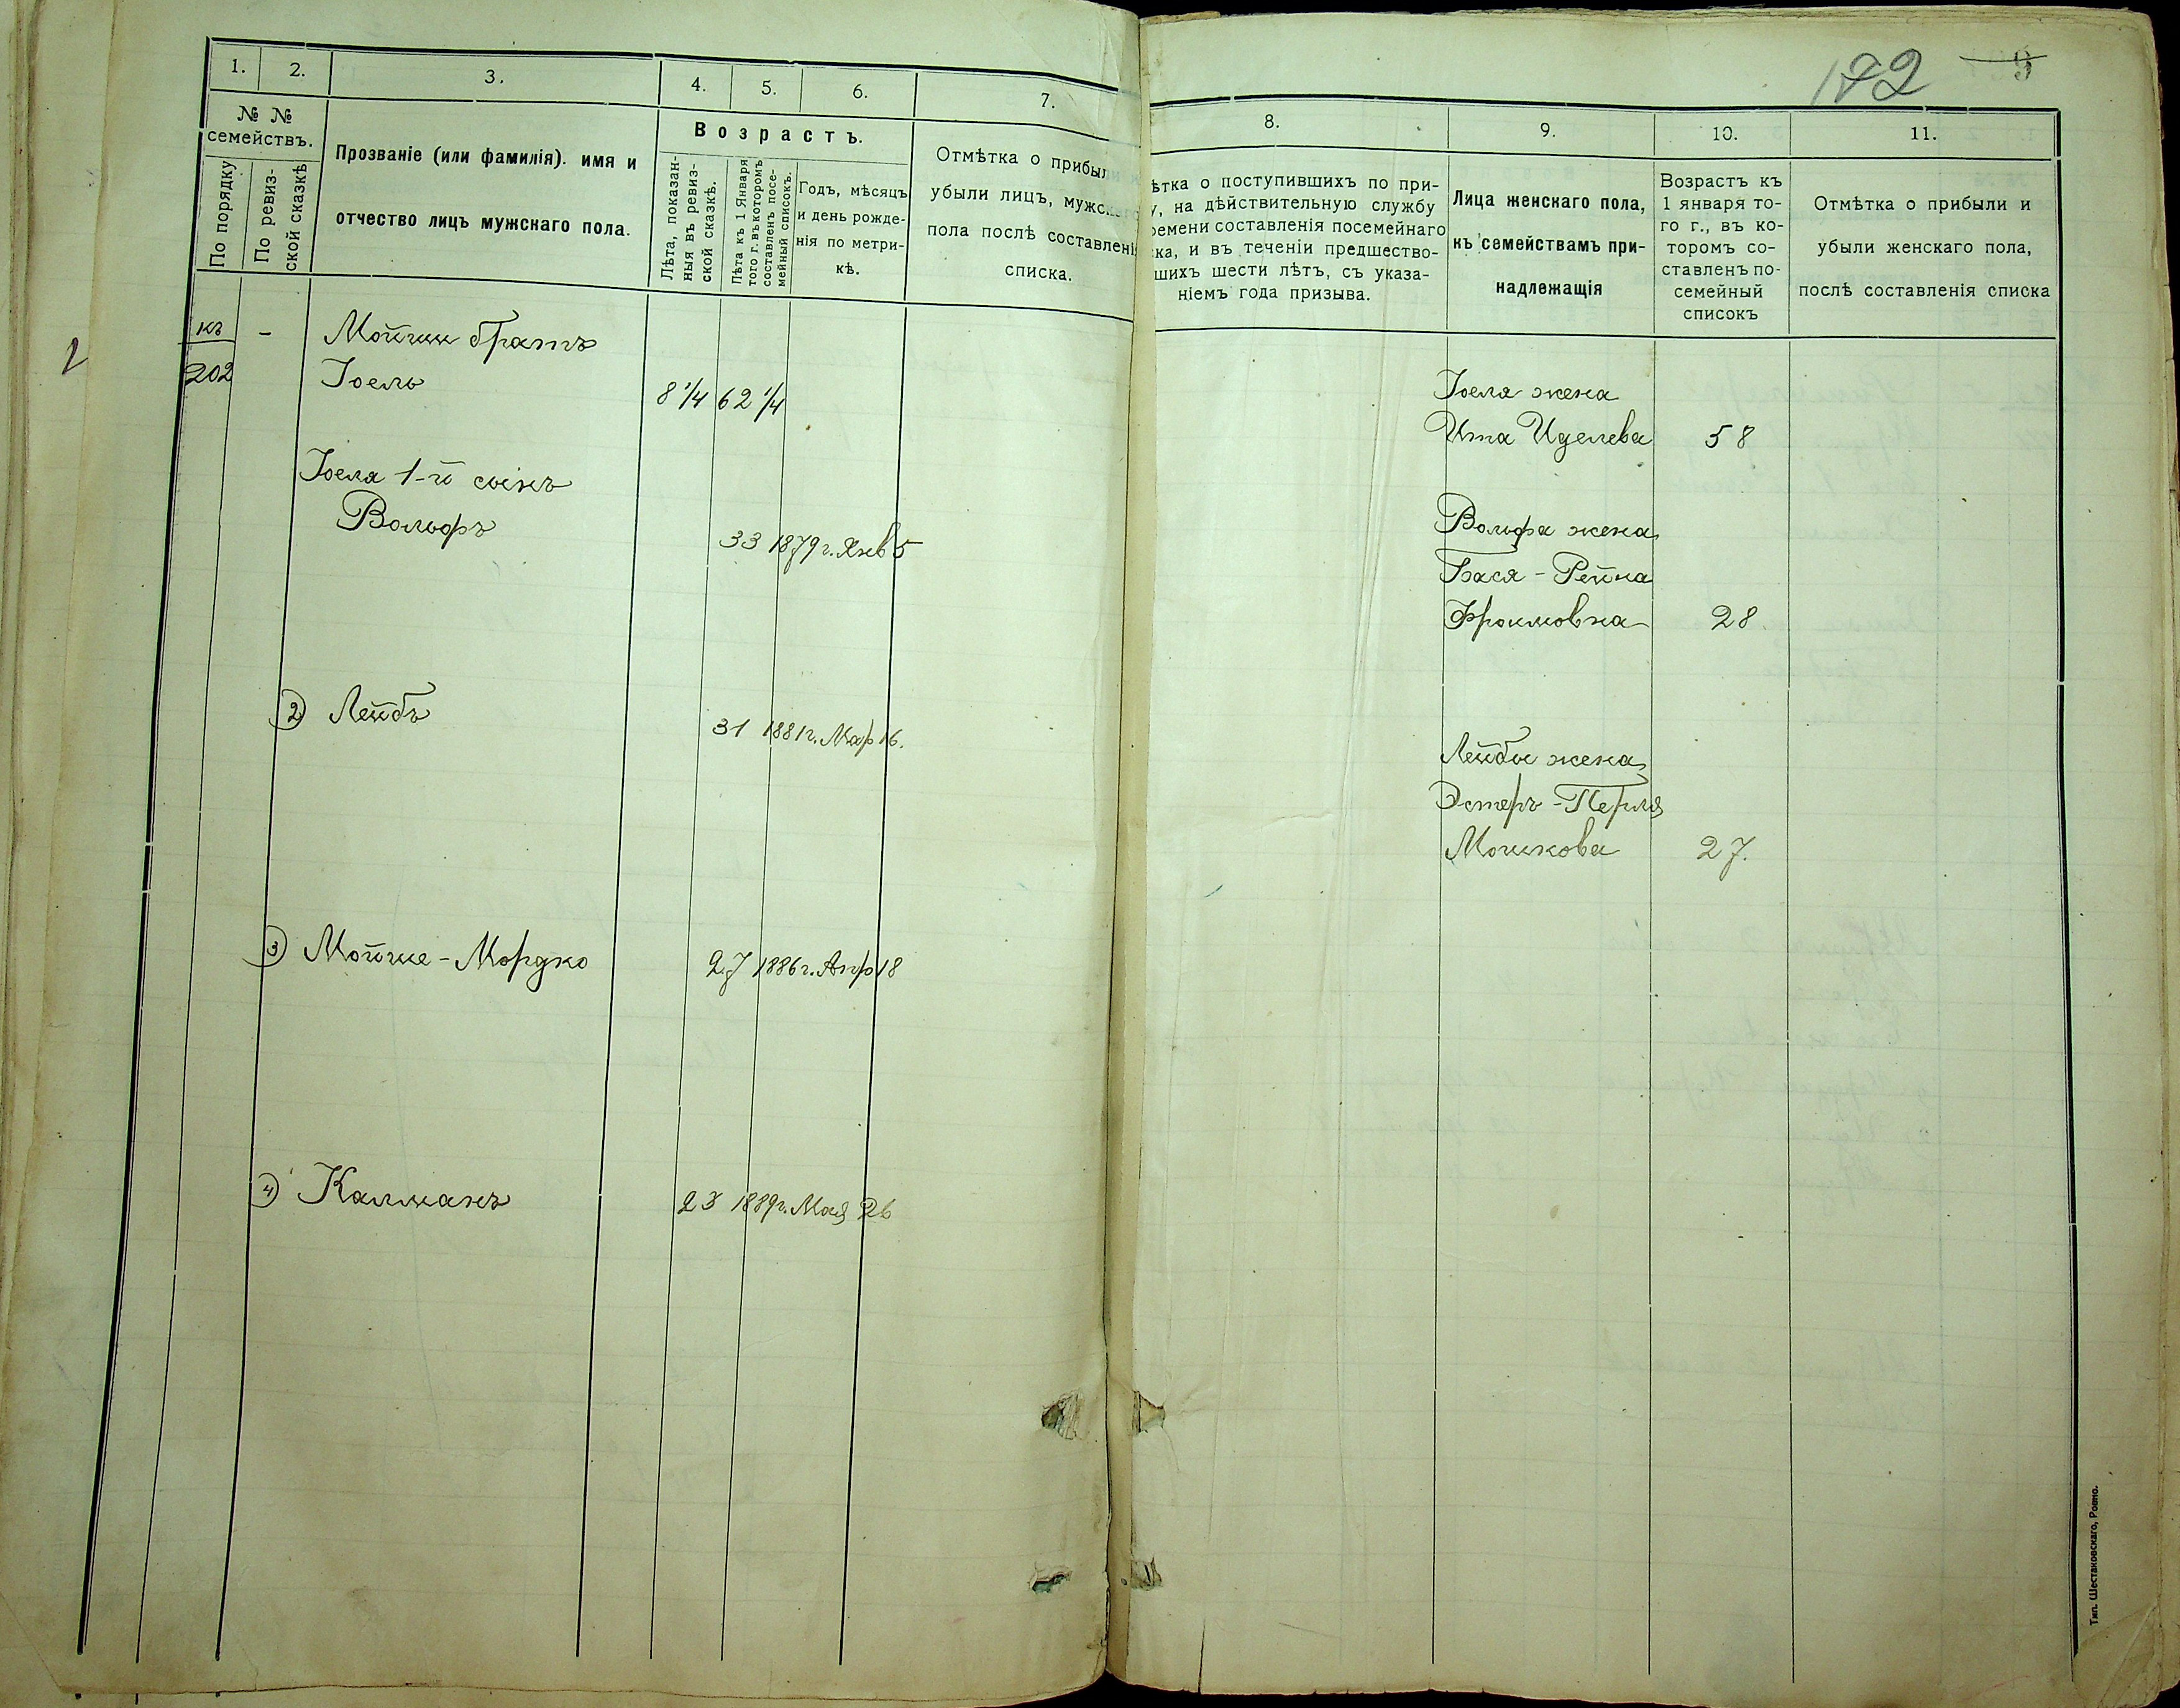 1.
2.
3.
4.
5.
6.
7.
№ №
семействъ.
По порядку
По ревиз-
ской сказкѣ
Прозваніе (или фамилія). имя и
отчество лицъ мужскаго пола.
Возрастъ.
Лѣта, показан-
ныя въ ревиз-
ской сказкѣ.
Лѣта къ 1 Января
того г. въ которомъ
составленъ посе-
мейный списокъ.
Годъ, мѣсяцъ
и день рожде-
нія по метри-
кѣ.
Отмѣтка о прибыл
убыли лицъ, мужскаго
пола послѣ составлені
списка.
къ
202
-
Мойши братъ
Іоель
8 1/4
62 1/4
Іоеля 1-й сынъ
Вольфъ
33
1879 г. Янв 5
2) Лейбъ
31
1881 г. Мар 16.
3) Мойше-Мордко
27
1886 г. Апр 18
4) Калманъ
23
1889 г. Мая 26
172
8.
9.
10.
11.
ѣтка о поступившихъ по при-
у, на дѣйствительную службу
ремени составленія посемейнаго
ска, и въ теченіи предшество-
шихъ шести лѣтъ, съ указа-
ніемъ года призыва.
Лица женскаго пола,
къ семействамъ при-
надлежащія
Возрастъ къ
1 января то-
го г., въ ко-
торомъ со-
ставленъ по-
семейный
списокъ
Отмѣтка о прибыли и
убыли женскаго пола,
послѣ составленія списка
Іоеля жена
Ита Иделева
58
Вольфа жена
Бася-Рейна
Фроимовна
28
Лейбы жена
Эстеръ-Перля
Мошкова
27.
Тип. Шестаковскаго, Ровно.